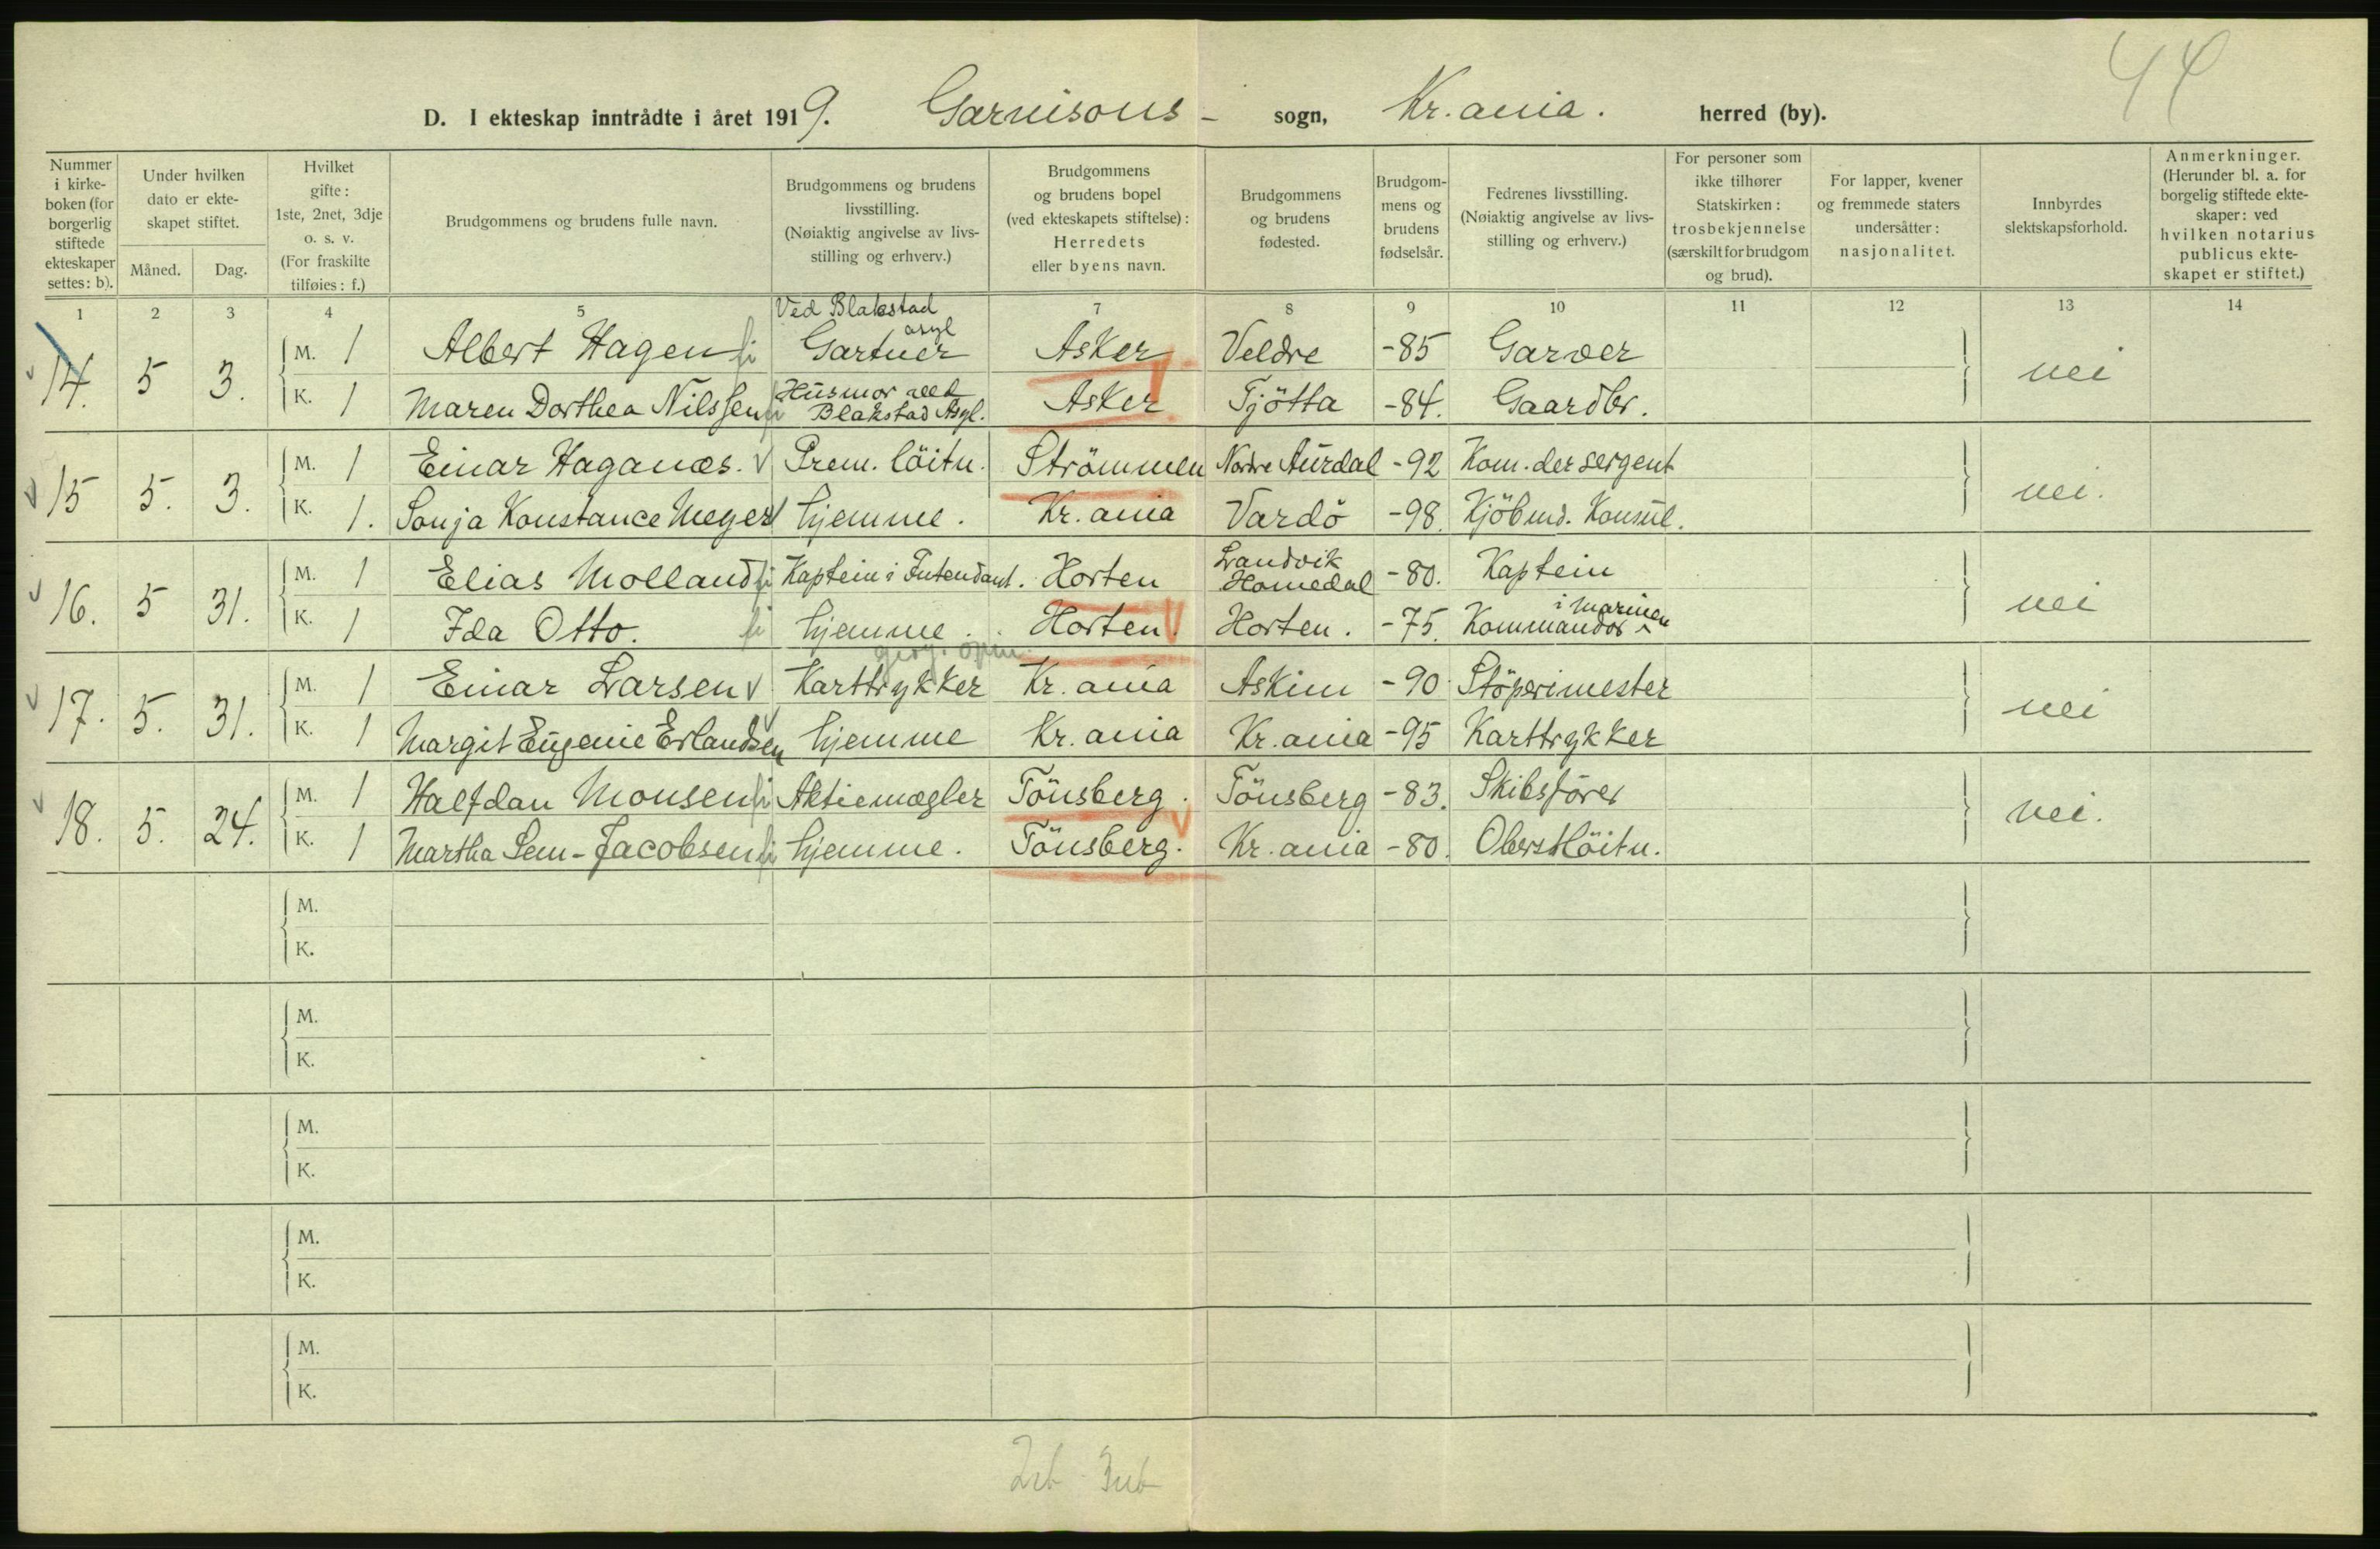 44
D. I ekteskap inntrådte i året 1919. Garnisons- sogn, Kr.ania. herred (by).
Nummer i kirke- boken (for borgerlig stiftede ekteskaper settes: b).
Under hvilken dato er ekte- skapet stiftet.
Måned. Dag.
Hvilket gifte: 1ste, 2net, 3dje o. s. v. (For fraskilte tilføies: f.)
Brudgommens og brudens fulle navn.
Brudgommens og brudens livsstilling. (Nøiaktig angivelse av livs- stilling og erhverv.)
Brudgommens og brudens bopel (ved ekteskapets stiftelse): Herredets eller byens navn.
Brudgommens og brudens fødested.
Brudgom- mens og brudens fødselsår.
Fedrenes livsstilling. (Nøiaktig angivelse av livs- stilling og erhverv.)
For personer som ikke tilhører Statskirken: trosbekjennelse (særskilt for brudgom og brud).
For lapper, kvener og fremmede staters undersåtter: nasjonalitet.
Innbyrdes slektskapsforhold.
Anmerkninger. (Herunder bl. a. for borgelig stiftede ekte- skaper: ved hvilken notarius publicus ekte- skapet er stiftet.)
1 2 3 4 5 7 8 9 10 11 12 13 14
14. 5 3. M. 1 Albert Hagen Ved Blakstad asyl Gartner Asker Veldre -85 Garver nei
K. 1 Maren Dorthea Nilssen Husmor ved Blakstad Asyl. Asker Tjötta -84. Gaardbr.
15 5. 3. M. 1 Einar Haganæs. Prem. löitn. Strömmen Nordre Aurdal -92 Kom.dersergent nei.
K. 1. Sonja Konstance Meyer hjemme. Kr.ania Vardö -98. Kjöbmd. Konsul.
16. 5 31. M. 1 Elias Molland Kaptein i Intendant. Horten Landvik Homedal -80. Kaptein nei
K. 1 Ida Otto. hjemme. Horten. Horten. -75. Kommandör i marinen
17. 5. 31. M. 1 Einar Larsen Karttrykker geog. opm. Kr.ania Askim -90 Stöperimester nei
K. 1 Margit Eugenie Erlandsen hjemme Kr.ania Kr.ania -95 Karttrykker
18. 5. 24. M. 1 Halfdan Monsen Aktiemægler Tönsberg. Tönsberg -83. Skibsförer nei.
K. 1 Martha Sem-Jacobsen hjemme. Tönsberg. Kr.ania -80. Oberstlöitn.
M.
K.
M.
K.
M.
K.
M.
K.
M.
K.